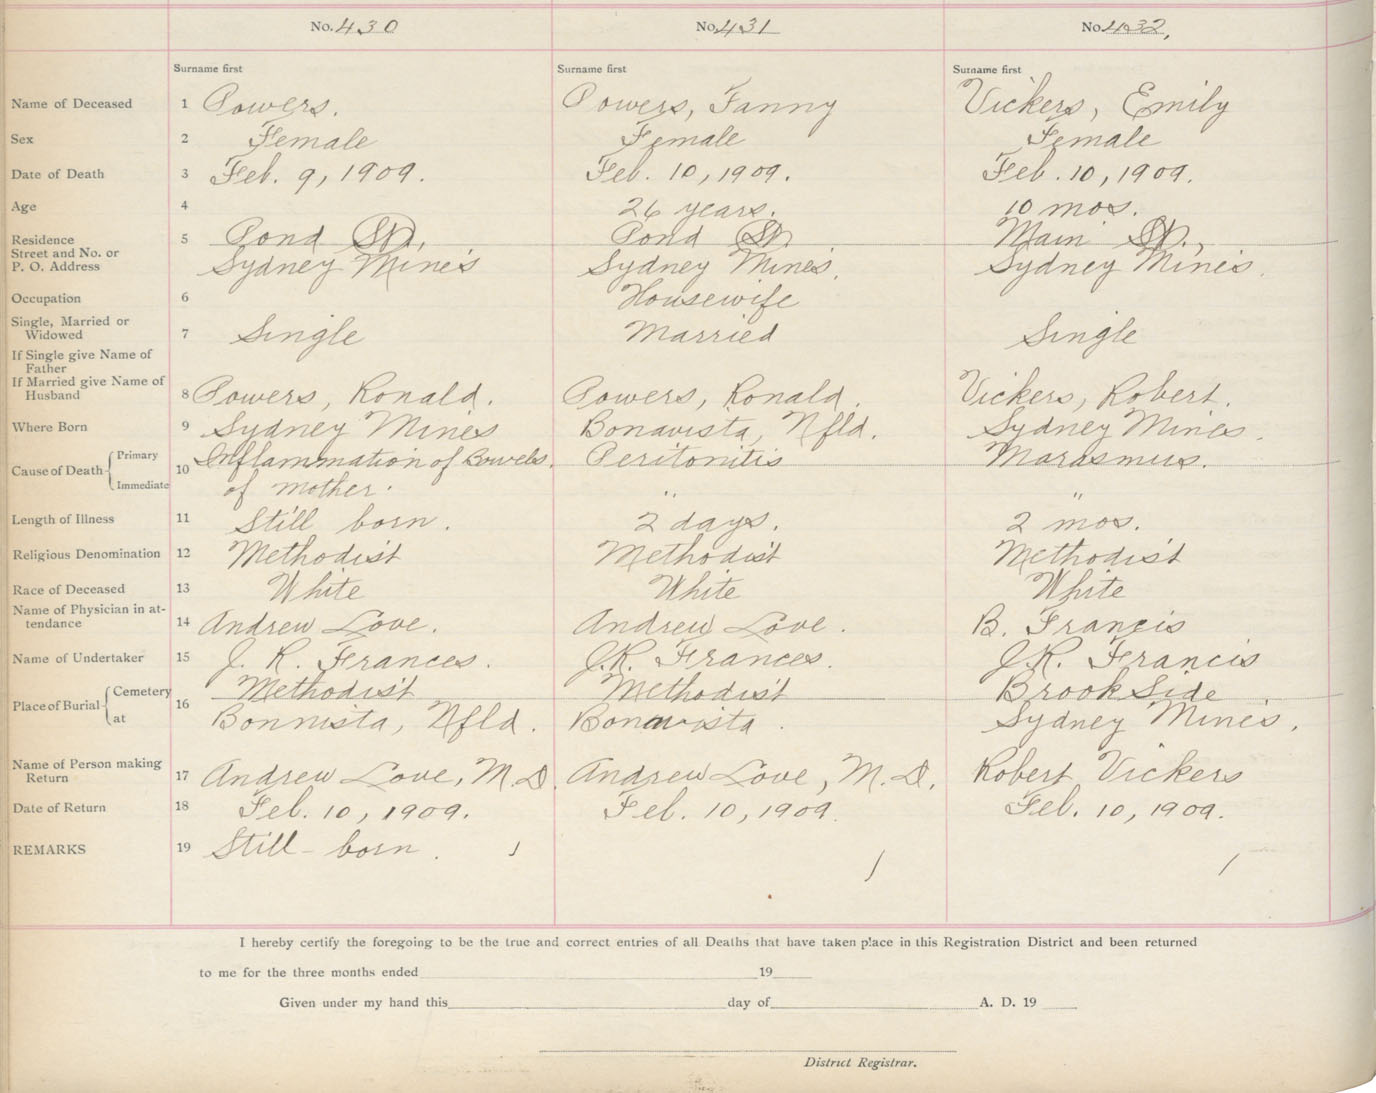 No. 430 No. 431 No. 432,
Surname first Surname first Surname first
Name of Deceased 1 Powers. Powers, Fanny Vickers, Emily
Sex 2 Female Female Female
Date of Death 3 Feb. 9, 1909. Feb. 10, 1909. Feb. 10, 1909.
Age 4 26 years. 10 mos.
Residence 5 Pond St., Pond St. Main St.,
Street and No. or
P. O. Address Sydney Mines Sydney Mines. Sydney Mines.
Occupation 6 Housewife
Single, Married or
Widowed 7 Single Married Single
If Single give Name of
Father
If Married give Name of
Husband 8 Powers, Ronald. Powers, Ronald. Vickers, Robert.
Where Born 9 Sydney Mines Bonavista, Nfld. Sydney Mines.
Cause of Death Primary 10 Inflammation of Bowels. Peritonitis Marasmus.
Immediate of mother. " "
Length of Illness 11 Still born. 2 days. 2 mos.
Religious Denomination 12 Methodist Methodist Methodist
Race of Deceased 13 White White White
Name of Physician in at-
tendance 14 Andrew Love. Andrew Love. B. Francis
Name of Undertaker 15 J. R. Frances. J.R. Frances. J.R. Francis
Place of Burial Cemetery 16 Methodist Methodist Brook Side
at Bonnista, Nfld. Bonavista. Sydney Mines.
Name of Person making
Return 17 Andrew Love, M.D. Andrew Love, M.D. Robert Vickers
Date of Return 18 Feb. 10, 1909. Feb. 10, 1909. Feb. 10, 1909.
REMARKS 19 Still-born. 1 1 1
I hereby certify the foregoing to be the true and correct entries of all Deaths that have taken place in this Registration District and been returned
to me for the three months ended 19
Given under my hand this day of A. D. 19
District Registrar.